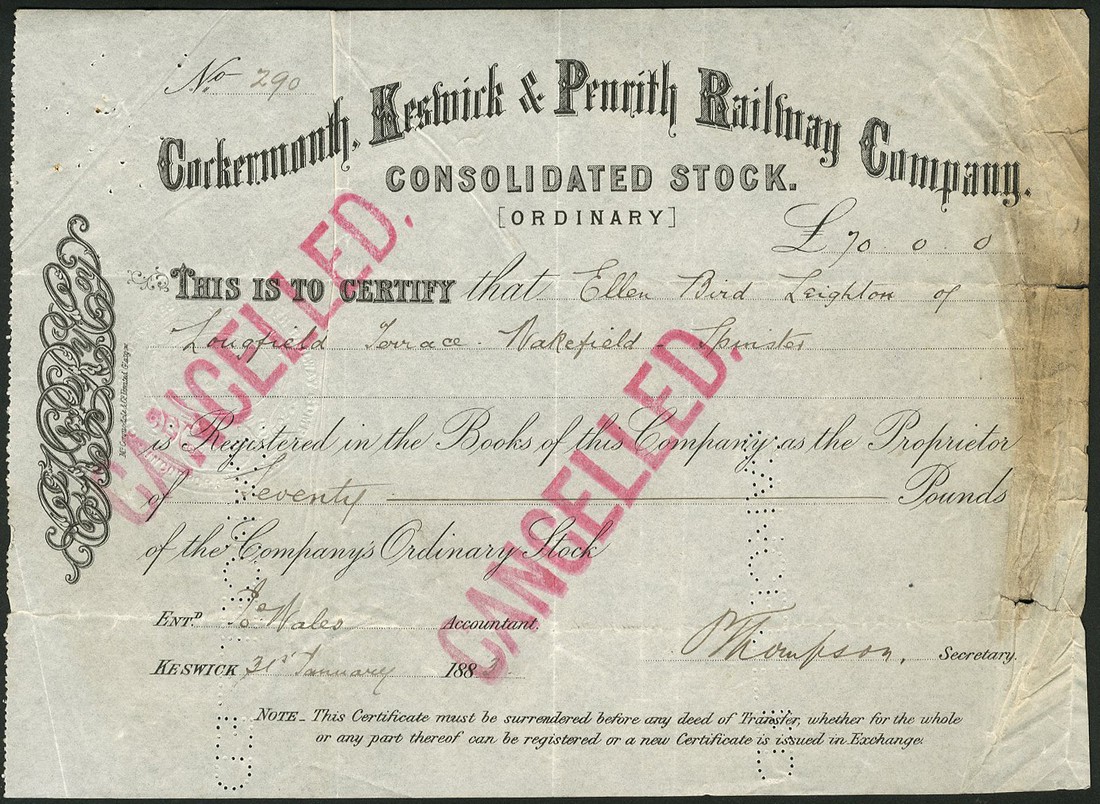 No 290
Cockermouth, Keswick & Penrith Railway Company.
CONSOLIDATED STOCK.
[ORDINARY]
£70 . 0 . 0
THIS IS TO CERTIFY that Ellen Bird Leighton of
Longfield Terrace Wakefield - Spinster
is Registered in the Books of this Company as the Proprietor
of Seventy Pounds
of the Company's Ordinary Stock
ENT.D Wales Accountant.
Thompson, Secretary.
KESWICK 31st January 1883
NOTE - This Certificate must be surrendered before any deed of Transfer, whether for the whole
or any part thereof can be registered or a new Certificate is issued in Exchange.
CANCELLED.
CANCELLED.